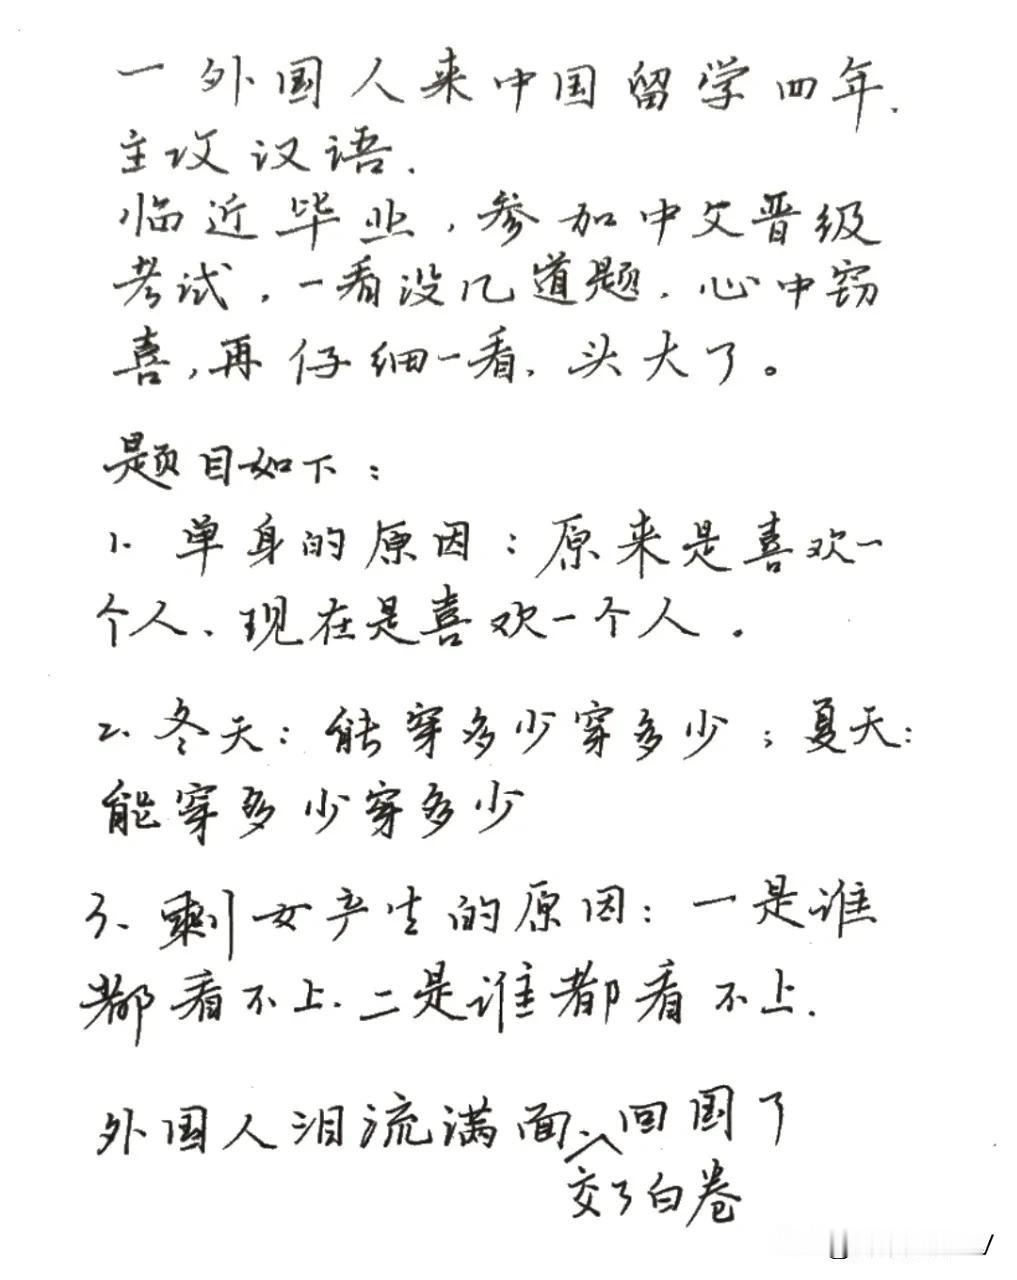 一外国人来中国留学四年.
主攻汉语.
临近毕业,参加中文晋级
考试,一看没几道题,心中窃
喜,再仔细一看,头大了。
题目如下:
1. 单身的原因:原来是喜欢一
个人、现在是喜欢一个人。
2、冬天:能穿多少穿多少;夏天:
能穿多少穿多少
3、剩女产生的原因:一是谁
都看不上.二是谁都看不上.
外国人泪流满面、回国了
交了白卷